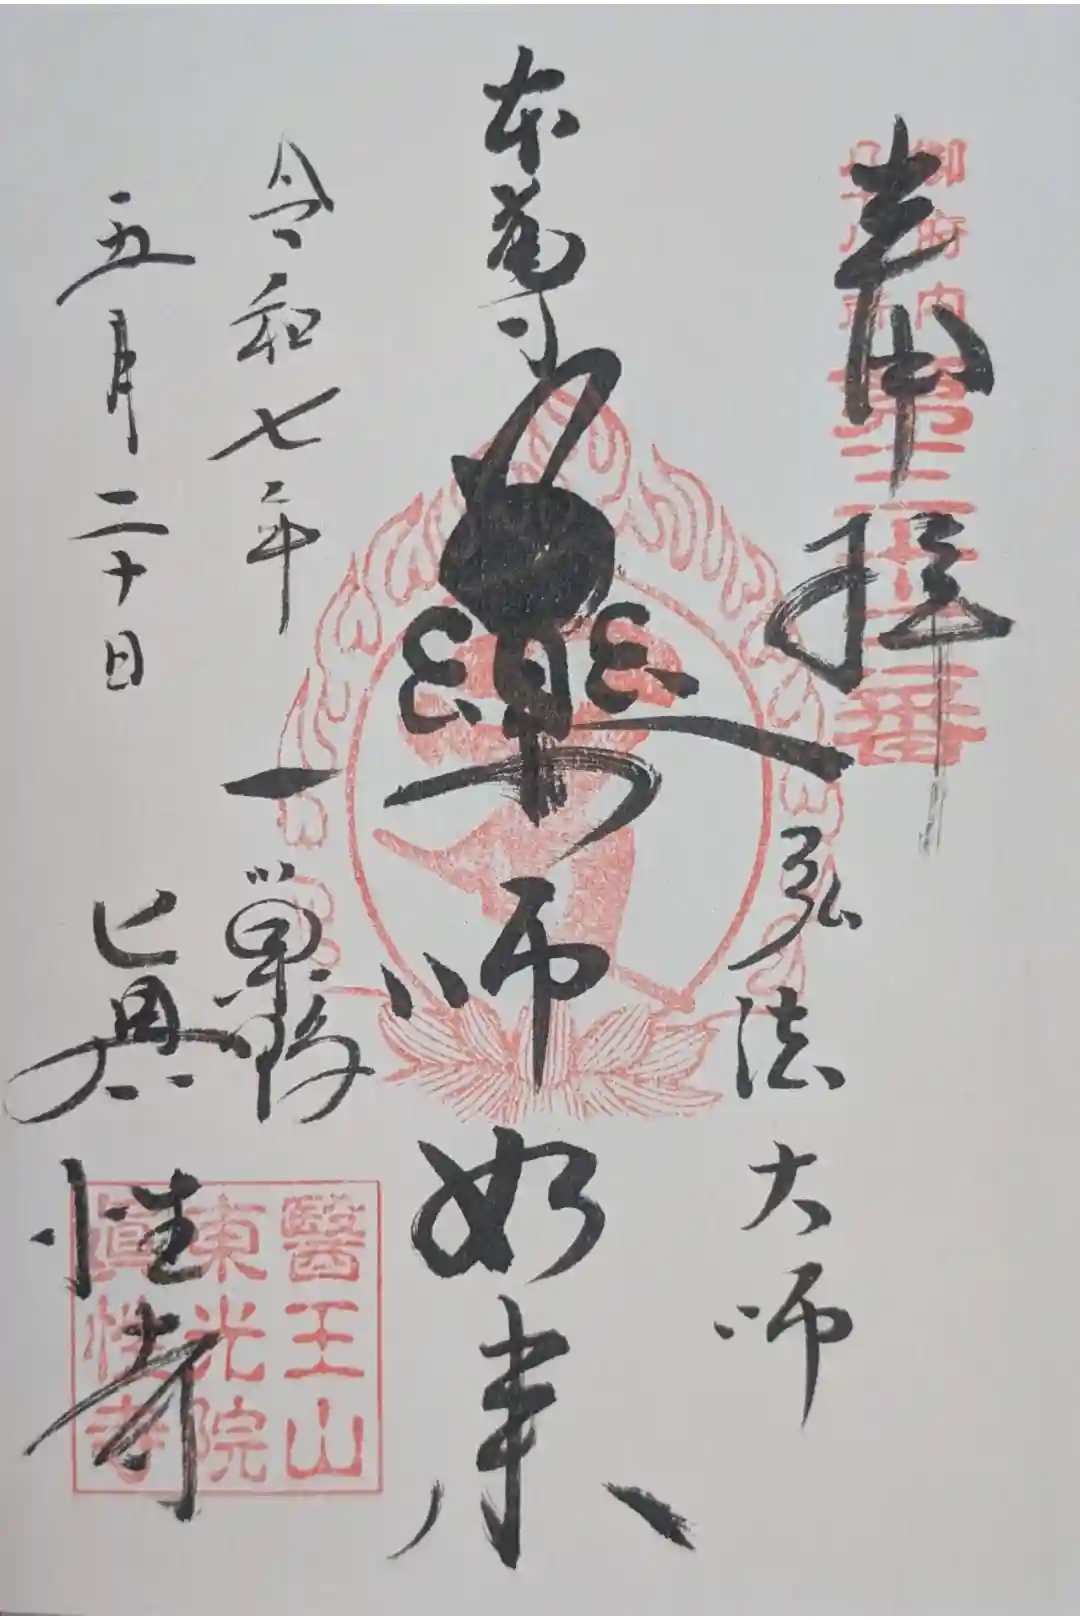 御府内
第三十三番
奉拝
弘法大師
本尊
薬師如来
令和七年
五月二十日
巣鴨
眞性寺
醫王山
東光院
眞性寺